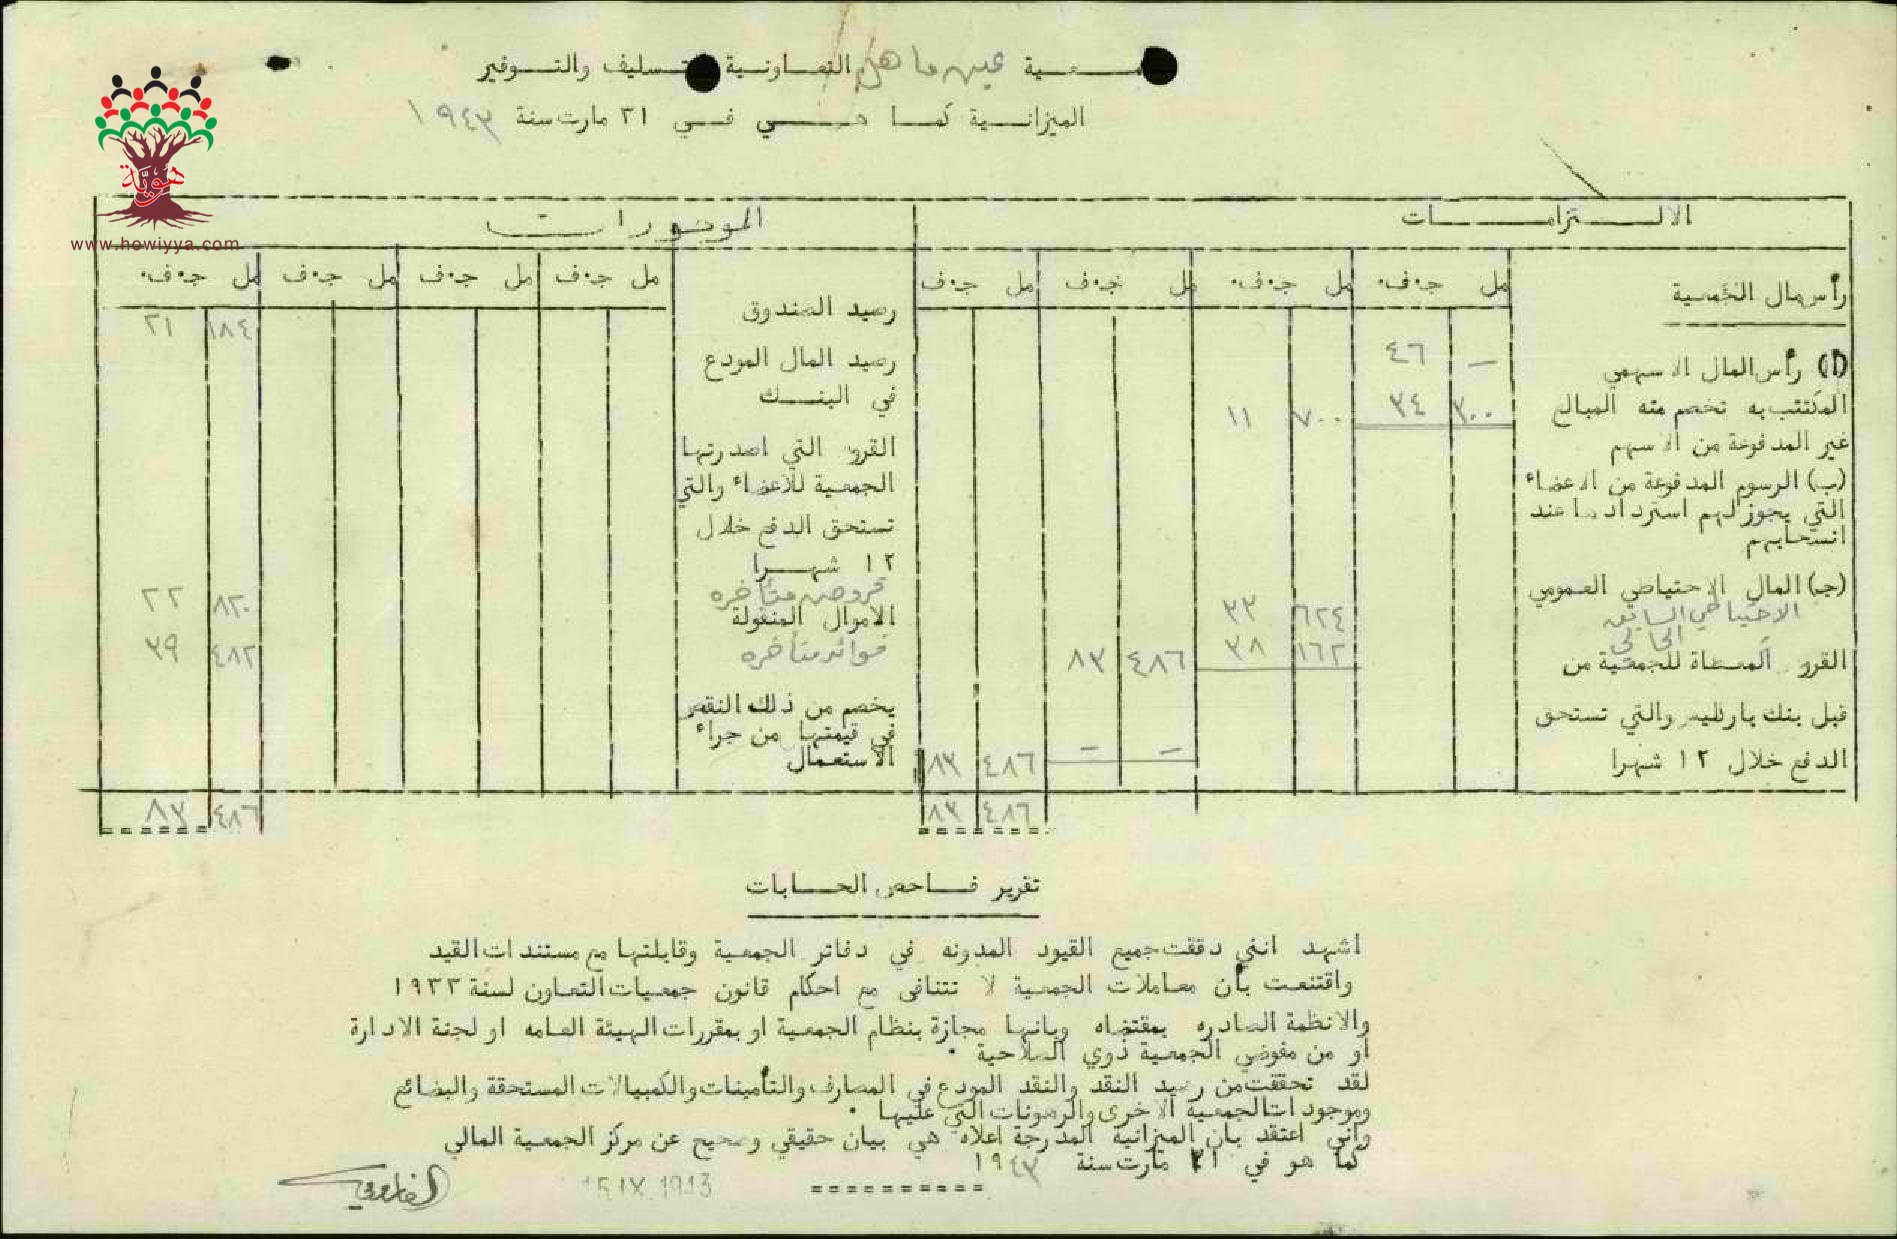 جمعية عين ماهل التعاونية للتسليف والتوفير
الميزانية كما هي في ٣١ مارت سنة ١٩٤٣
هويّة
www.howiyya.com
الالتزامات
مل ج.ف. مل ج.ف. مل ج.ف مل ج.ف
رأسمال الجمعية
(ا) رأس المال الاسهمي
— ٤٦
المكتتب به تخصم منه المبالغ
٣٠٠ ٣٤ ٧٠٠ ١١
غير المدفوعة من الاسهم
(ب) الرسوم المدفوعة من الاعضاء
التي يجوز لهم استردادها عند
انسحابهم
(جـ) المال الاحتياطي العمومي
الاحتياطي السابق
٦٢٤ ٣٣
الحالي
١٦٢ ٣٨ ٤٨٦ ٨٣
القروض المعطاة للجمعية من
قبل بنك باركليس والتي تستحق
الدفع خلال ١٢ شهرا
— — ٤٨٦ ٨٣
٤٨٦ ٨٣
الموجودات
مل ج.ف مل ج.ف مل ج.ف مل ج.ف.
رصيد الصندوق
١٨٤ ٢١
رصيد المال المودع
في البنك
القروض التي اصدرتها
الجمعية للاعضاء والتي
تستحق الدفع خلال
١٢ شهرا
قروض متأخره
٨٢٠ ٢٢
الاموال المنقولة
فوائد متأخره
٤٨٢ ٣٩
يخصم من ذلك النقص
في قيمتها من جراء
الاستعمال
٤٨٦ ٨٣
تقرير فاحص الحسابات
اشهد انني دققت جميع القيود المدونه في دفاتر الجمعية وقابلتها مع مستندات القيد
واقتنعت بأن معاملات الجمعية لا تتنافى مع احكام قانون جمعيات التعاون لسنة ١٩٣٣
والانظمة الصادره بمقتضاه وبانها مجازة بنظام الجمعية او بمقررات الهيئة العامه او لجنة الادارة
او من مفوضي الجمعية ذوي الصلاحية .
لقد تحققت من رصيد النقد والنقد المودع في المصارف والتأمينات والكمبيالات المستحقة والبضائع
وموجودات الجمعية الاخرى والرهونات التي عليها .
واني اعتقد بان الميزانية المدرجة اعلاه هي بيان حقيقي وصحيح عن مركز الجمعية المالي
كما هو في ٣١ مارت سنة ١٩٤٣
15 IX 1943